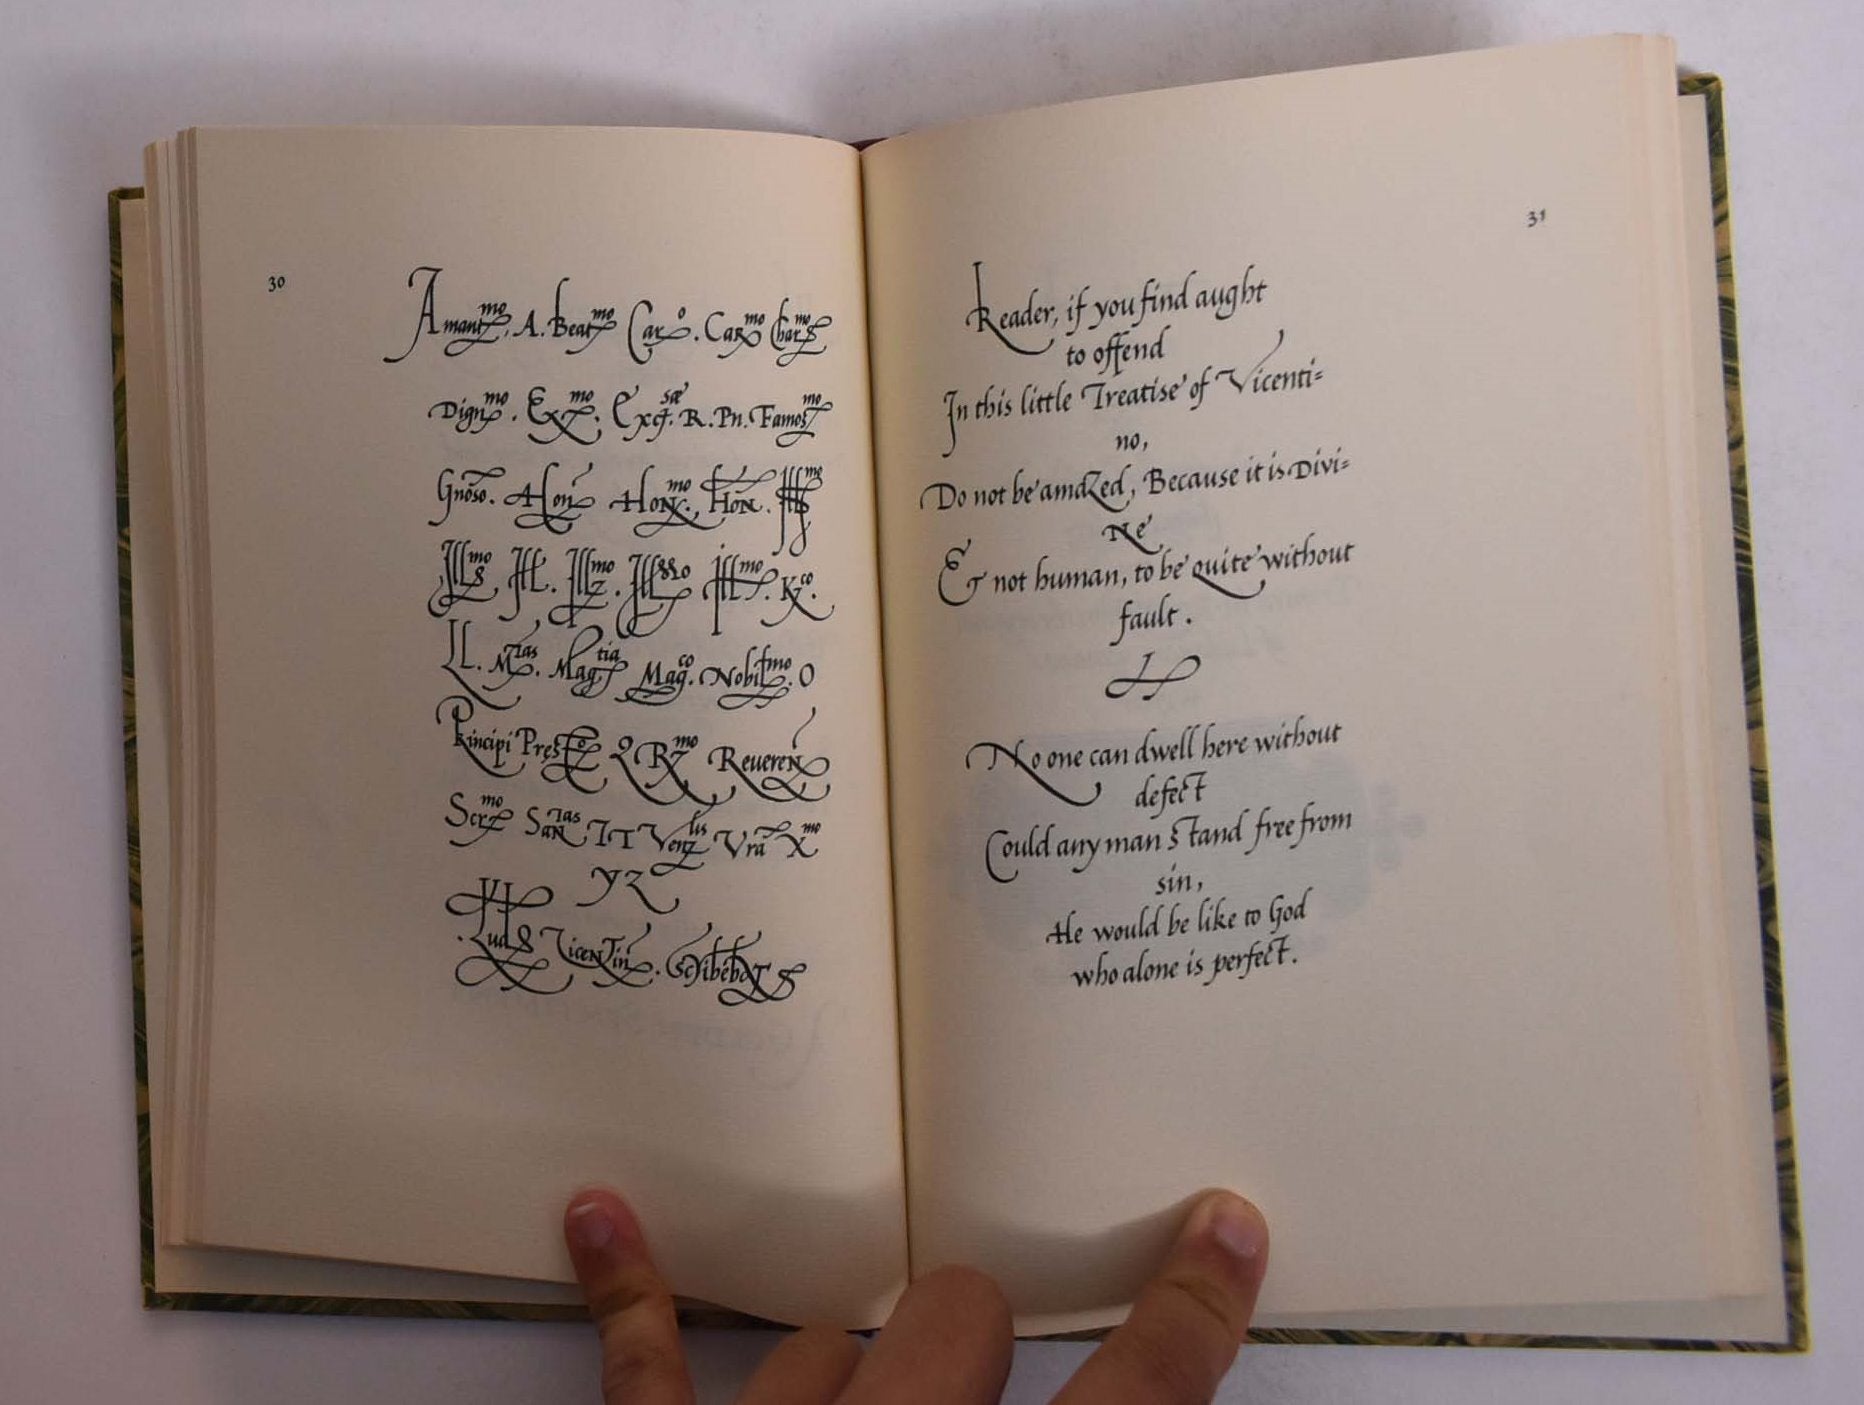 30
Amant mo, A. Beat mo Car o. Car mo Char mo
Dign mo. Ex mo. Exc sæ. R. Pn. Famos mo
Gnõso. Hon Hon mo. Hõn. Ill mo
Ill mo Ill. Ill mo. Ill Ill mo. K co.
LL. M tas. Mag tia Mag co. Nobil mo. O
Principi Pręs Q R mo Reueren
Ser mo San tas IT Ven lis Vrã X mo
YZ
Lud Vicentin. Scribebat
31
Reader, if you find aught
to offend
In this little Treatise of Vicenti=
no,
Do not be amaZed, Because it is Divi=
Ne
Et not human, to be quite without
fault.
No one can dwell here without
defect
Could any man stand free from
sin,
He would be like to God
who alone is perfect.